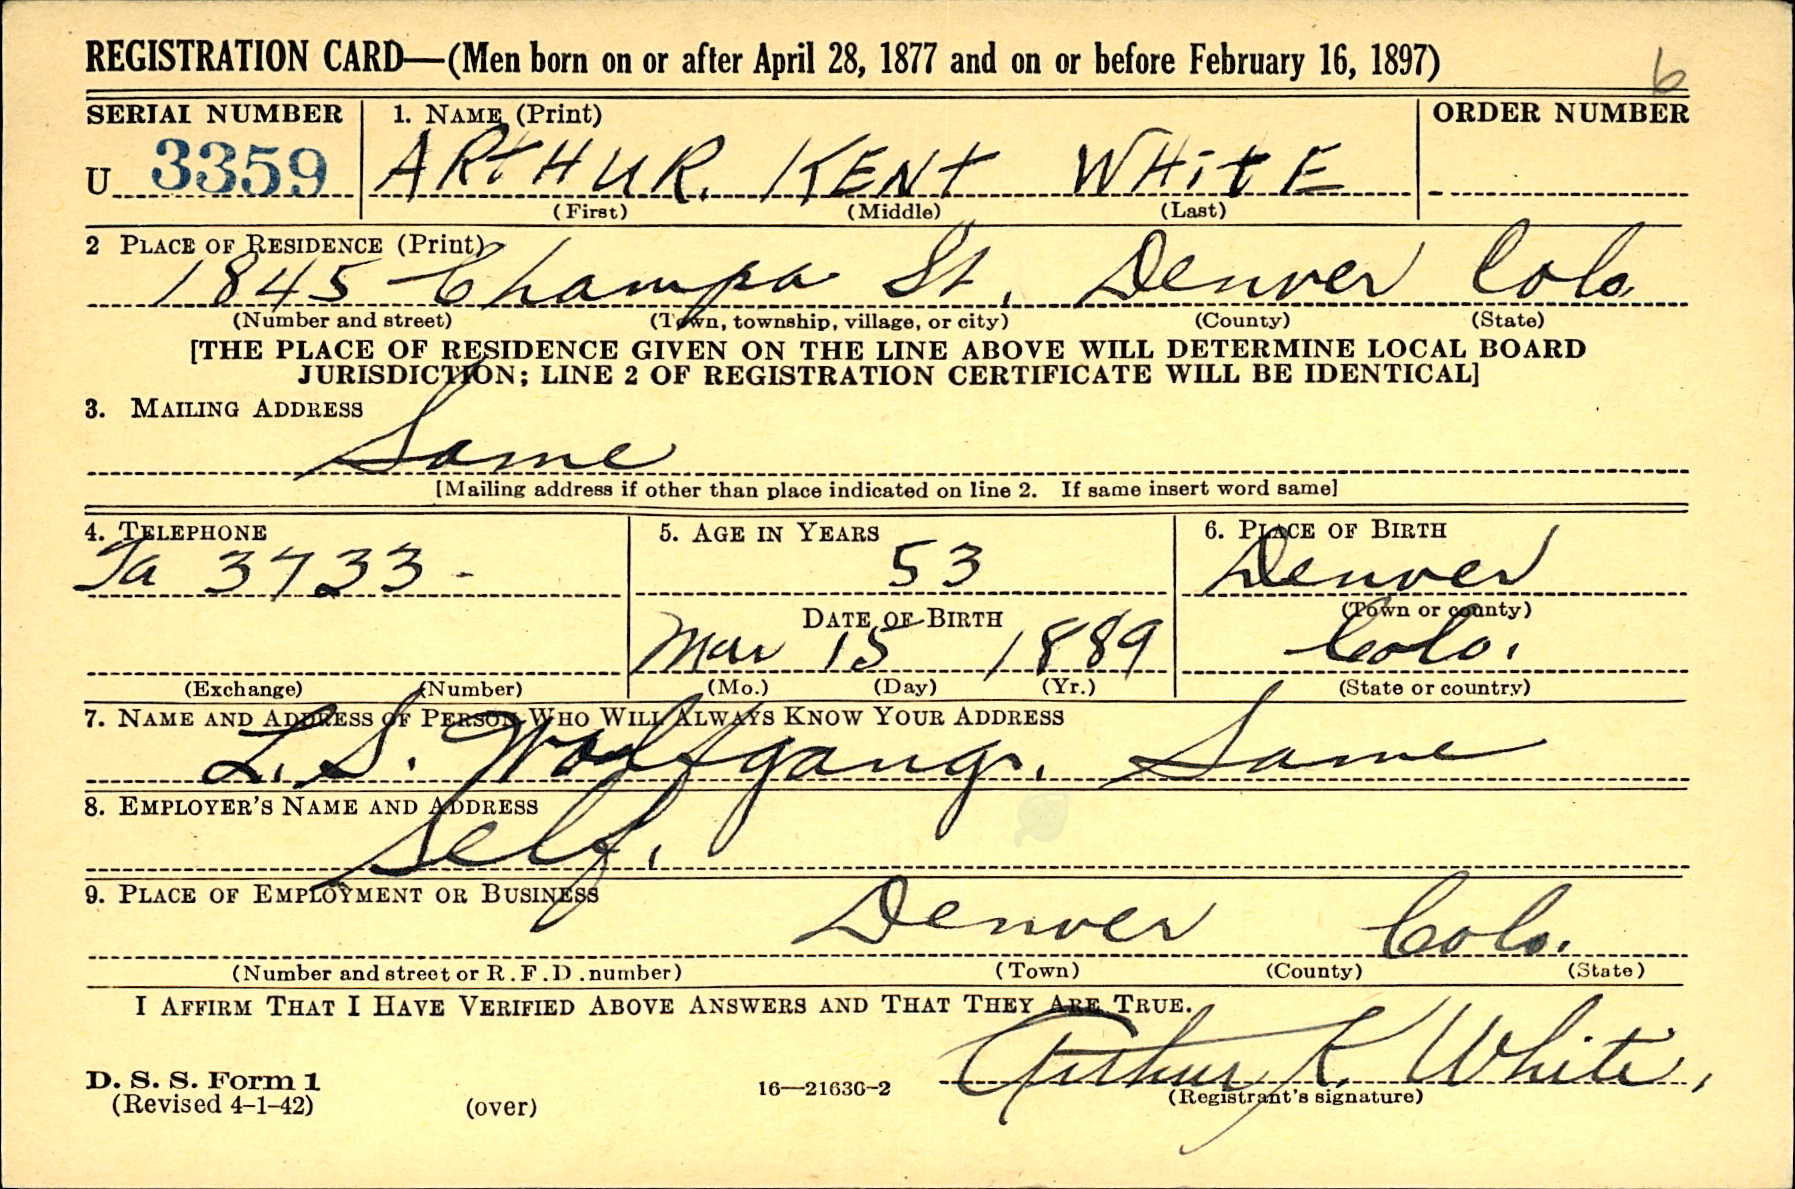 6
REGISTRATION CARD—(Men born on or after April 28, 1877 and on or before February 16, 1897)
SERIAL NUMBER 1. NAME (Print) ORDER NUMBER
U 3359 ARTHUR. KENT WHITE
(First) (Middle) (Last)
2 PLACE OF RESIDENCE (Print)
1845 Champa St, Denver Colo
(Number and street) (Town, township, village, or city) (County) (State)
[THE PLACE OF RESIDENCE GIVEN ON THE LINE ABOVE WILL DETERMINE LOCAL BOARD
JURISDICTION; LINE 2 OF REGISTRATION CERTIFICATE WILL BE IDENTICAL]
3. MAILING ADDRESS
Same
[Mailing address if other than place indicated on line 2. If same insert word same]
4. TELEPHONE 5. AGE IN YEARS 6. PLACE OF BIRTH
Ta 3733 - 53 Denver
DATE OF BIRTH (Town or county)
Mar 15 1889 Colo.
(Exchange) (Number) (Mo.) (Day) (Yr.) (State or country)
7. NAME AND ADDRESS OF PERSON WHO WILL ALWAYS KNOW YOUR ADDRESS
L. S. Wolfgang. Same
8. EMPLOYER'S NAME AND ADDRESS
Self.
9. PLACE OF EMPLOYMENT OR BUSINESS
Denver Colo.
(Number and street or R.F.D. number) (Town) (County) (State)
I AFFIRM THAT I HAVE VERIFIED ABOVE ANSWERS AND THAT THEY ARE TRUE.
Arthur K. White.
D. S. S. Form 1
(Revised 4-1-42) (over) 16—21630-2 (Registrant's signature)